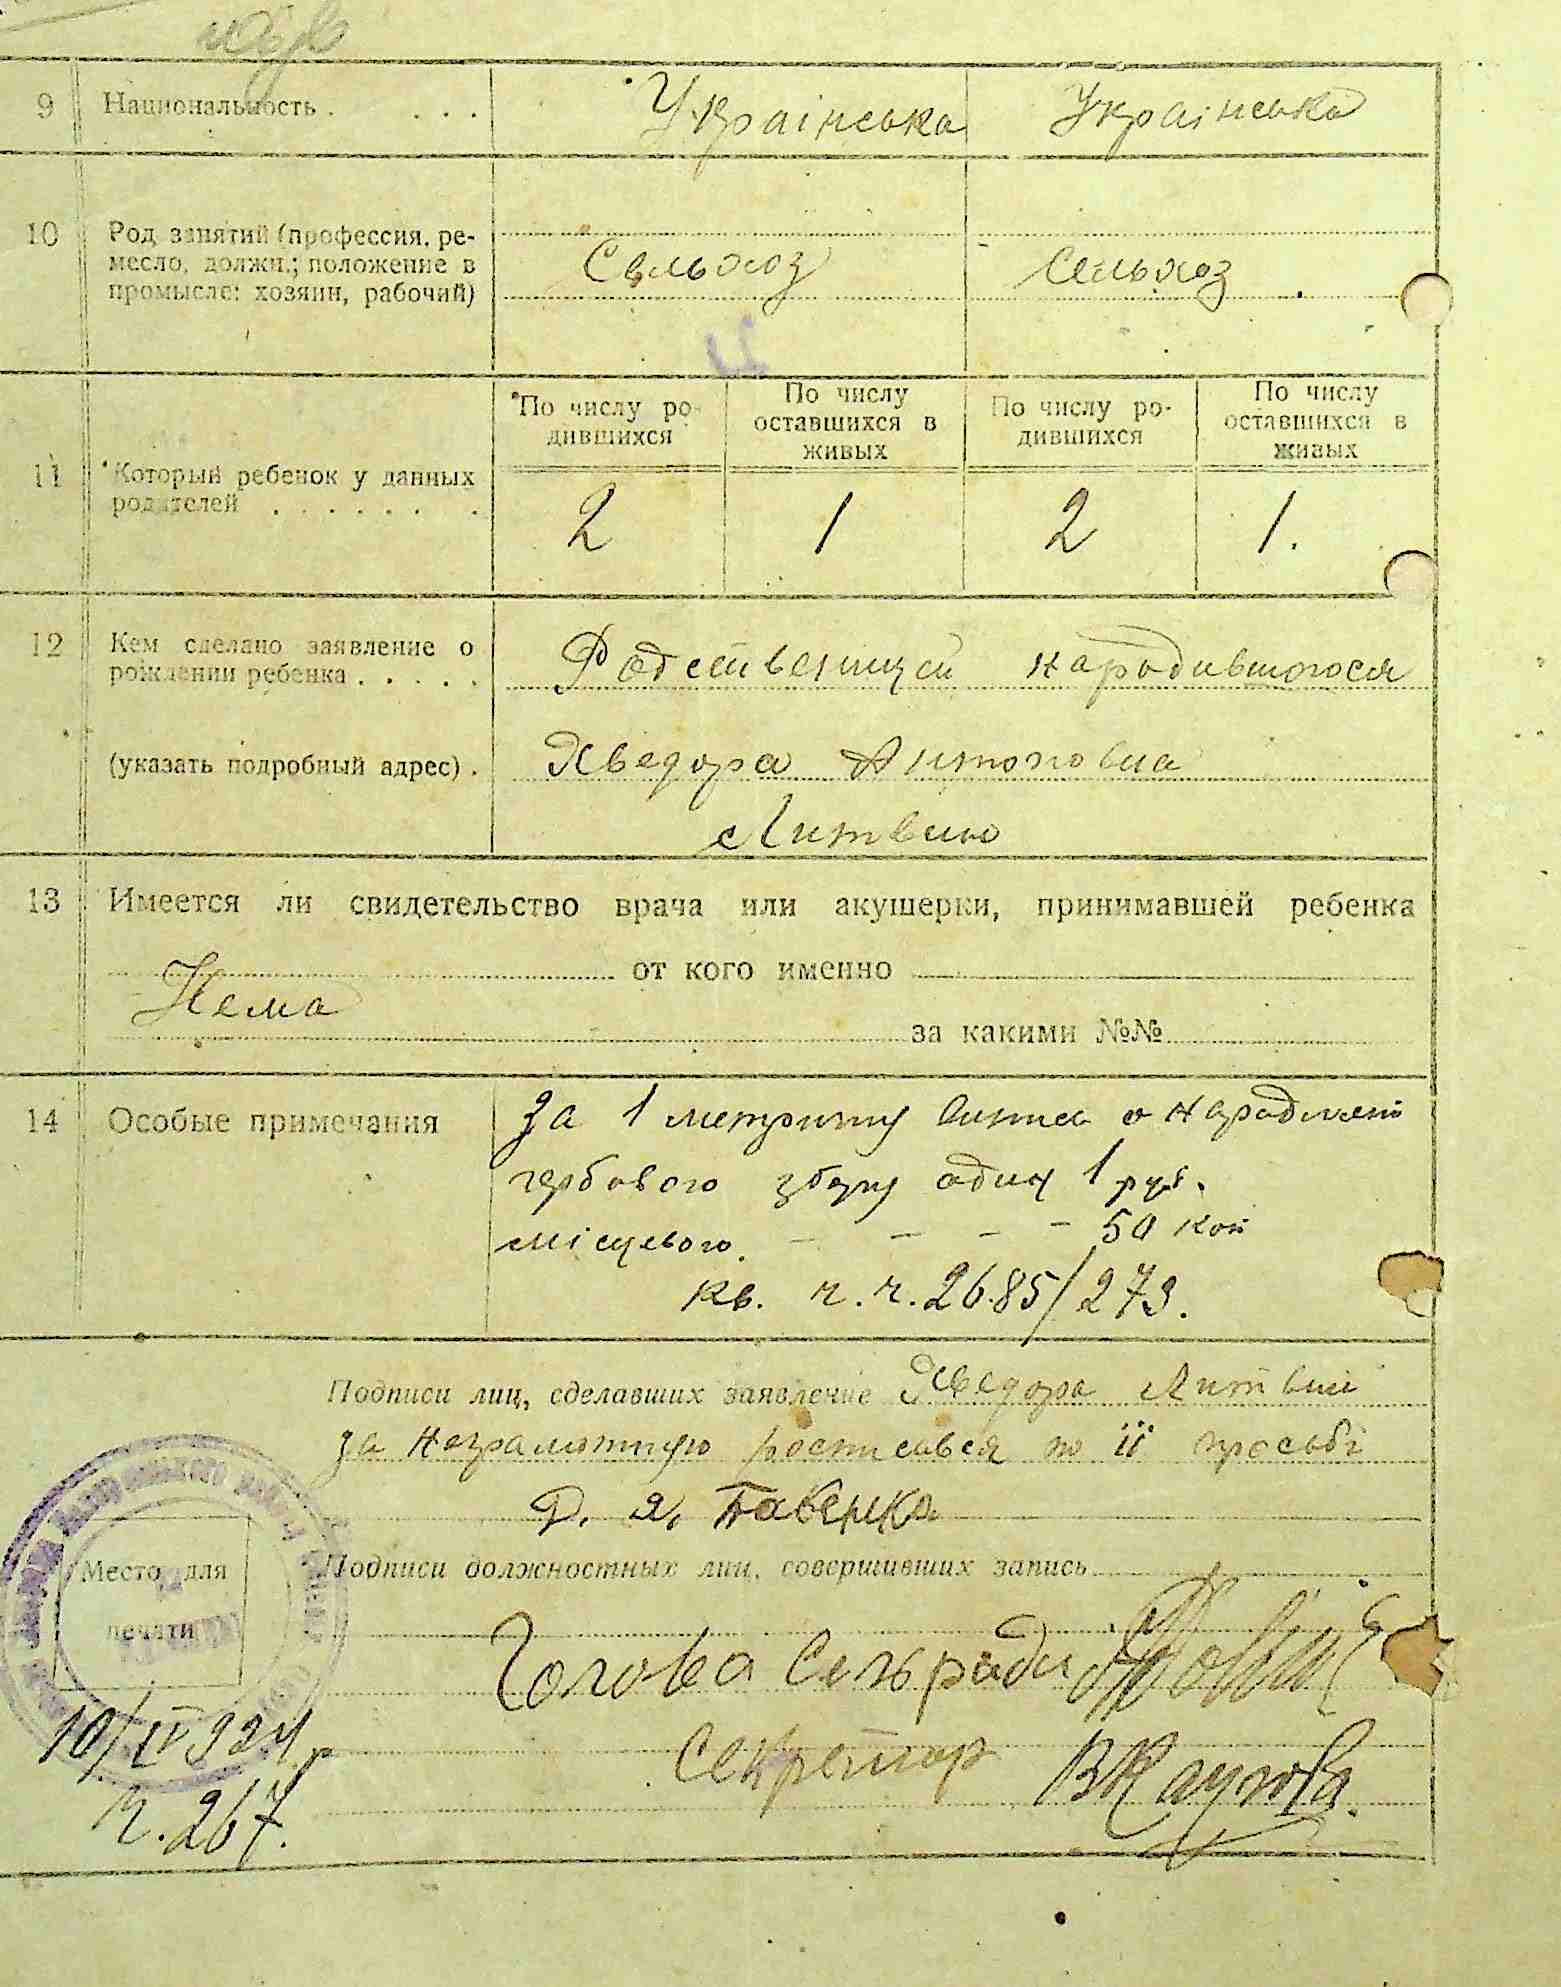 9 Национальность . . . . Українська Українська
10 Род занятий (профессия, ре-
месло, должн.; положение в
промысле: хозяин, рабочий)
Сельхоз Сельхоз
По числу ро-
дившихся
По числу
оставшихся в
живых
По числу ро-
дившихся
По числу
оставшихся в
живых
11 Который ребенок у данных
родителей . . . . . . .
2 1 2 1.
12 Кем сделано заявление о
рождении ребенка . . . . .
Родственицей народившогося
(указать подробный адрес) .
Хведора Антоновна
Литвин
13 Имеется ли свидетельство врача или акушерки, принимавшей ребенка
от кого именно
Нема
за какими №№
14 Особые примечания
За 1 метричну о народжені
гербового збору один 1 руб.
місцевого. – – – – 50 коп
кв. ч. ч. 2685/273.
Подписи лиц, сделавших заявление Хведора Литвин
за неграмотную росписався по її просьбі
Подписи должностных лиц, совершивших запись
Голова Сельради
Место для
печати
10/IV 924 р
Секретар
Ч. 267.